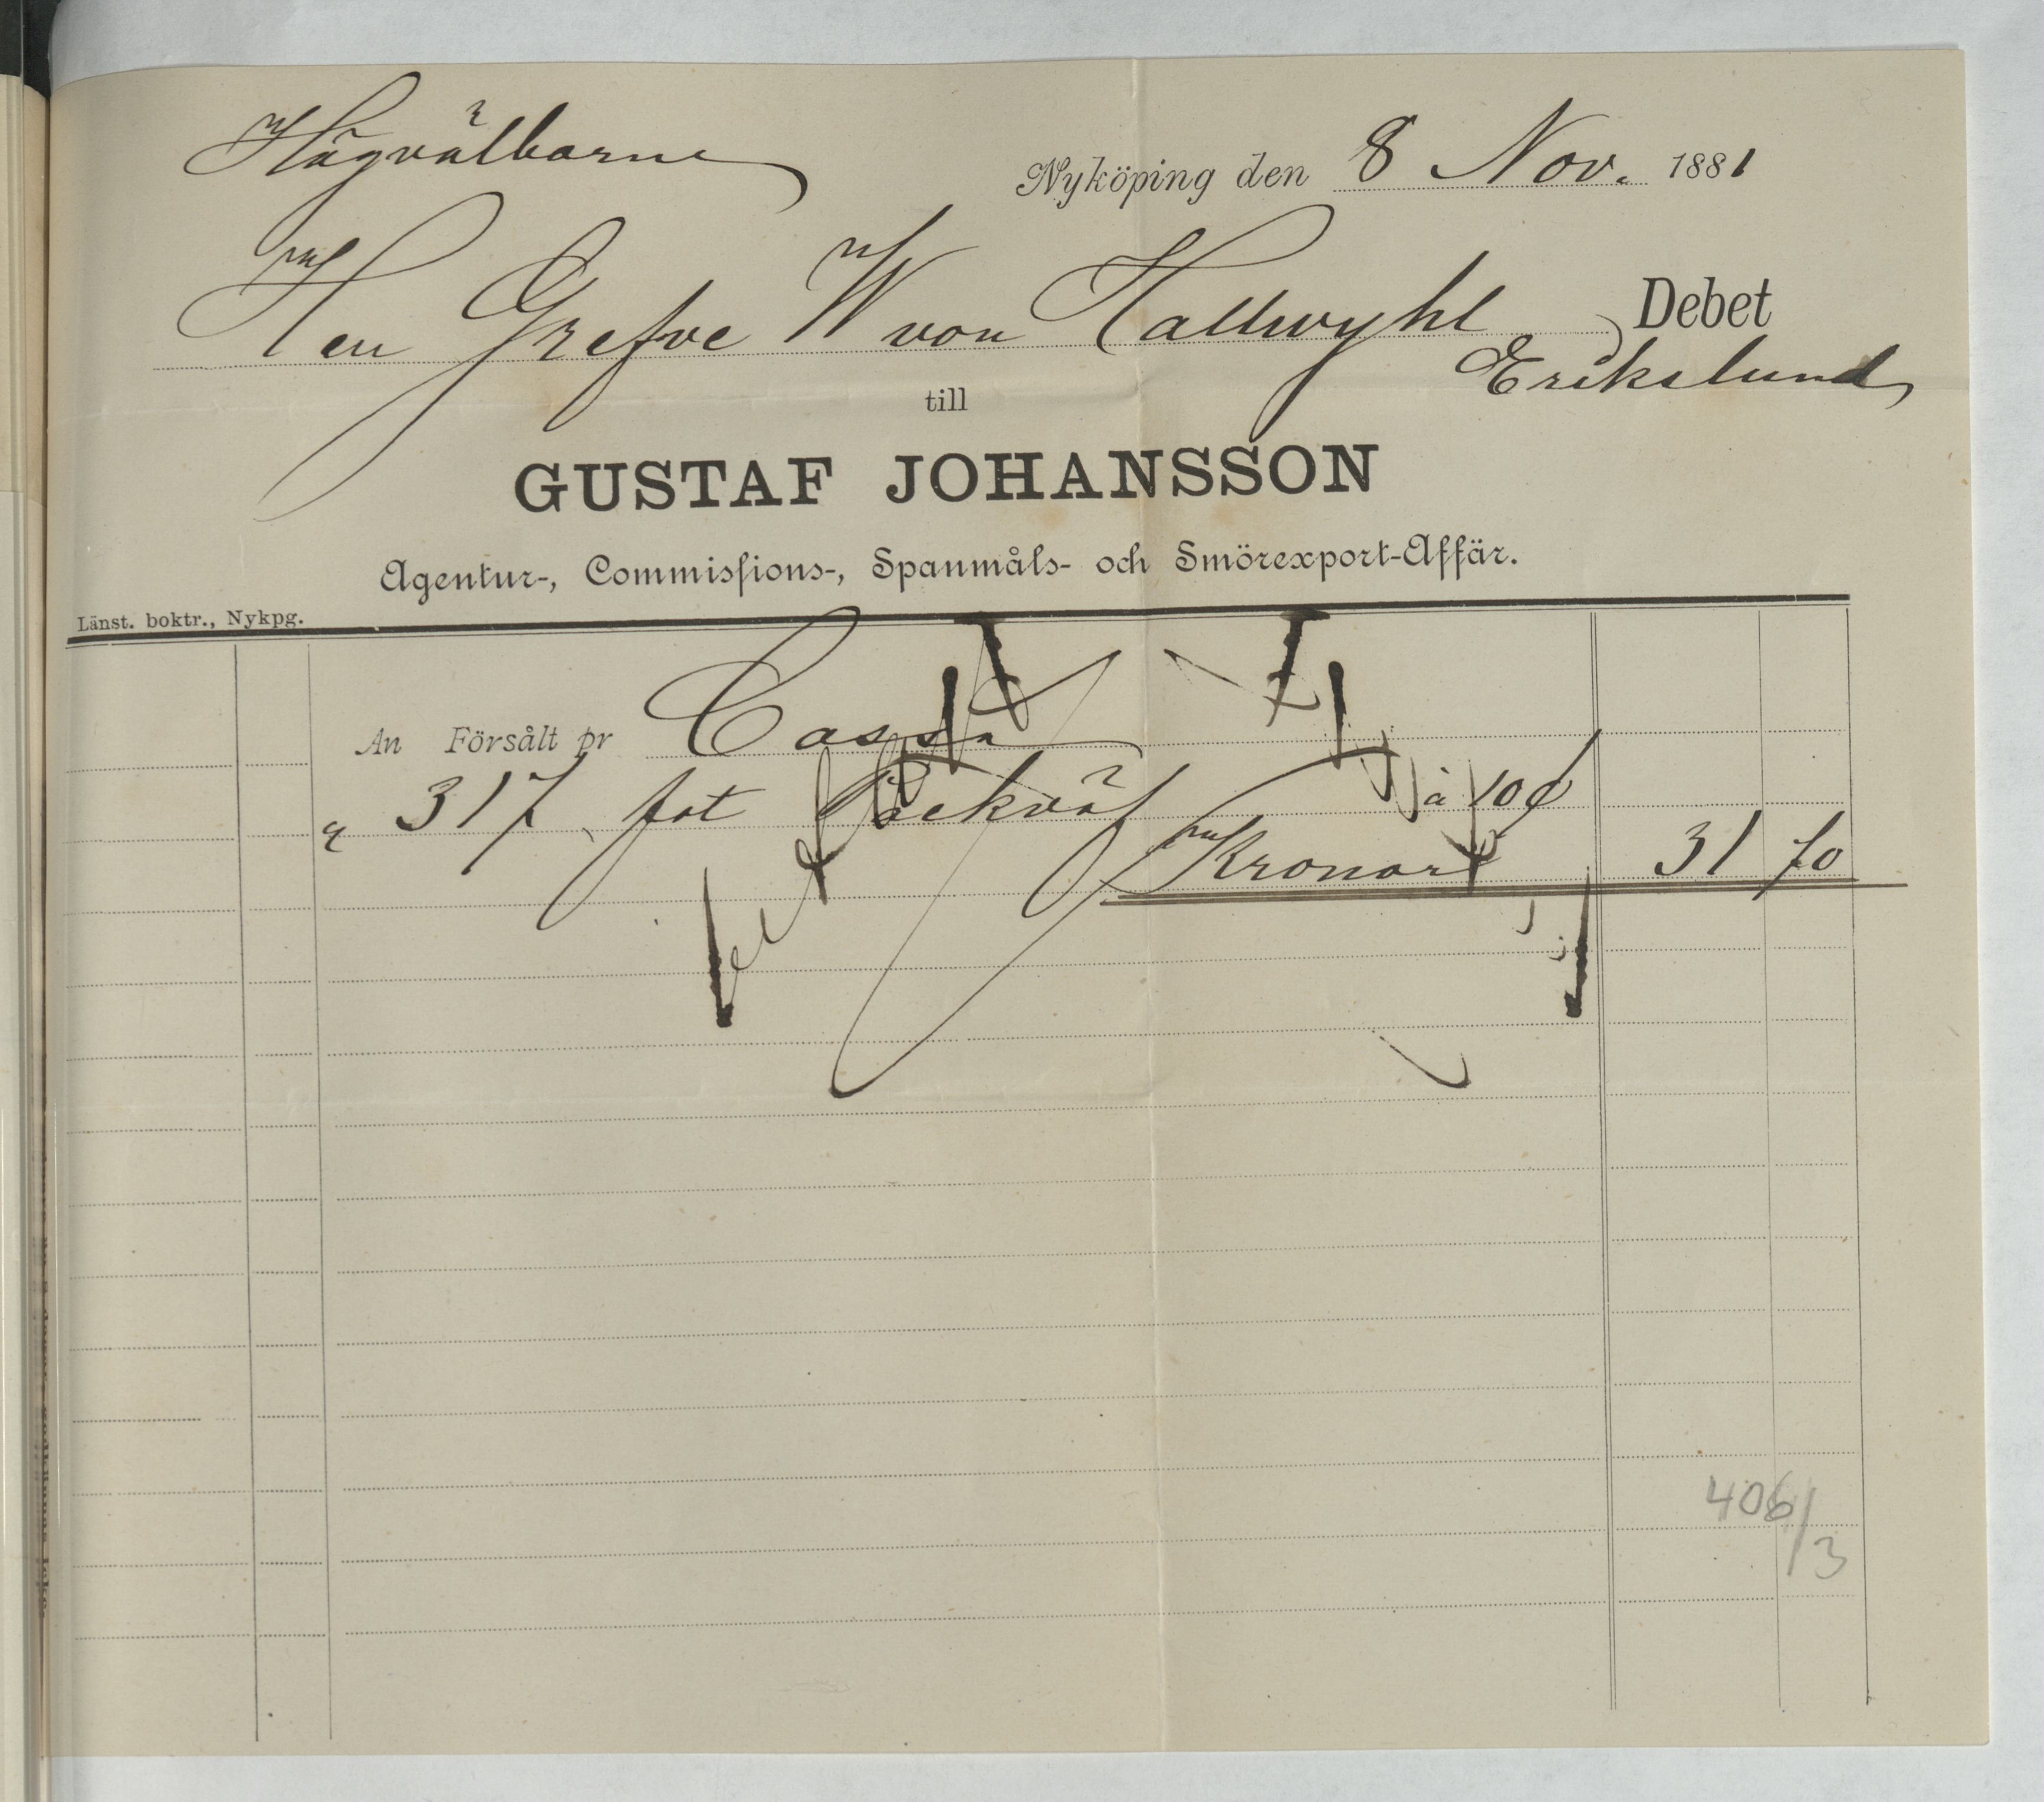 Högvälborne
Nyköping den 8 Nov. 1881
Herr Grefve W von Hallwyhl Debet
Erikslund
till
GUSTAF JOHANSSON
Agentur-, Commissions-, Spanmåls- och Smörexport-Affär.
Länst. boktr., Nykpg.
An Försålt pr Cassa
317 fot Säckväf à 10
Kronor 31 70
406/3